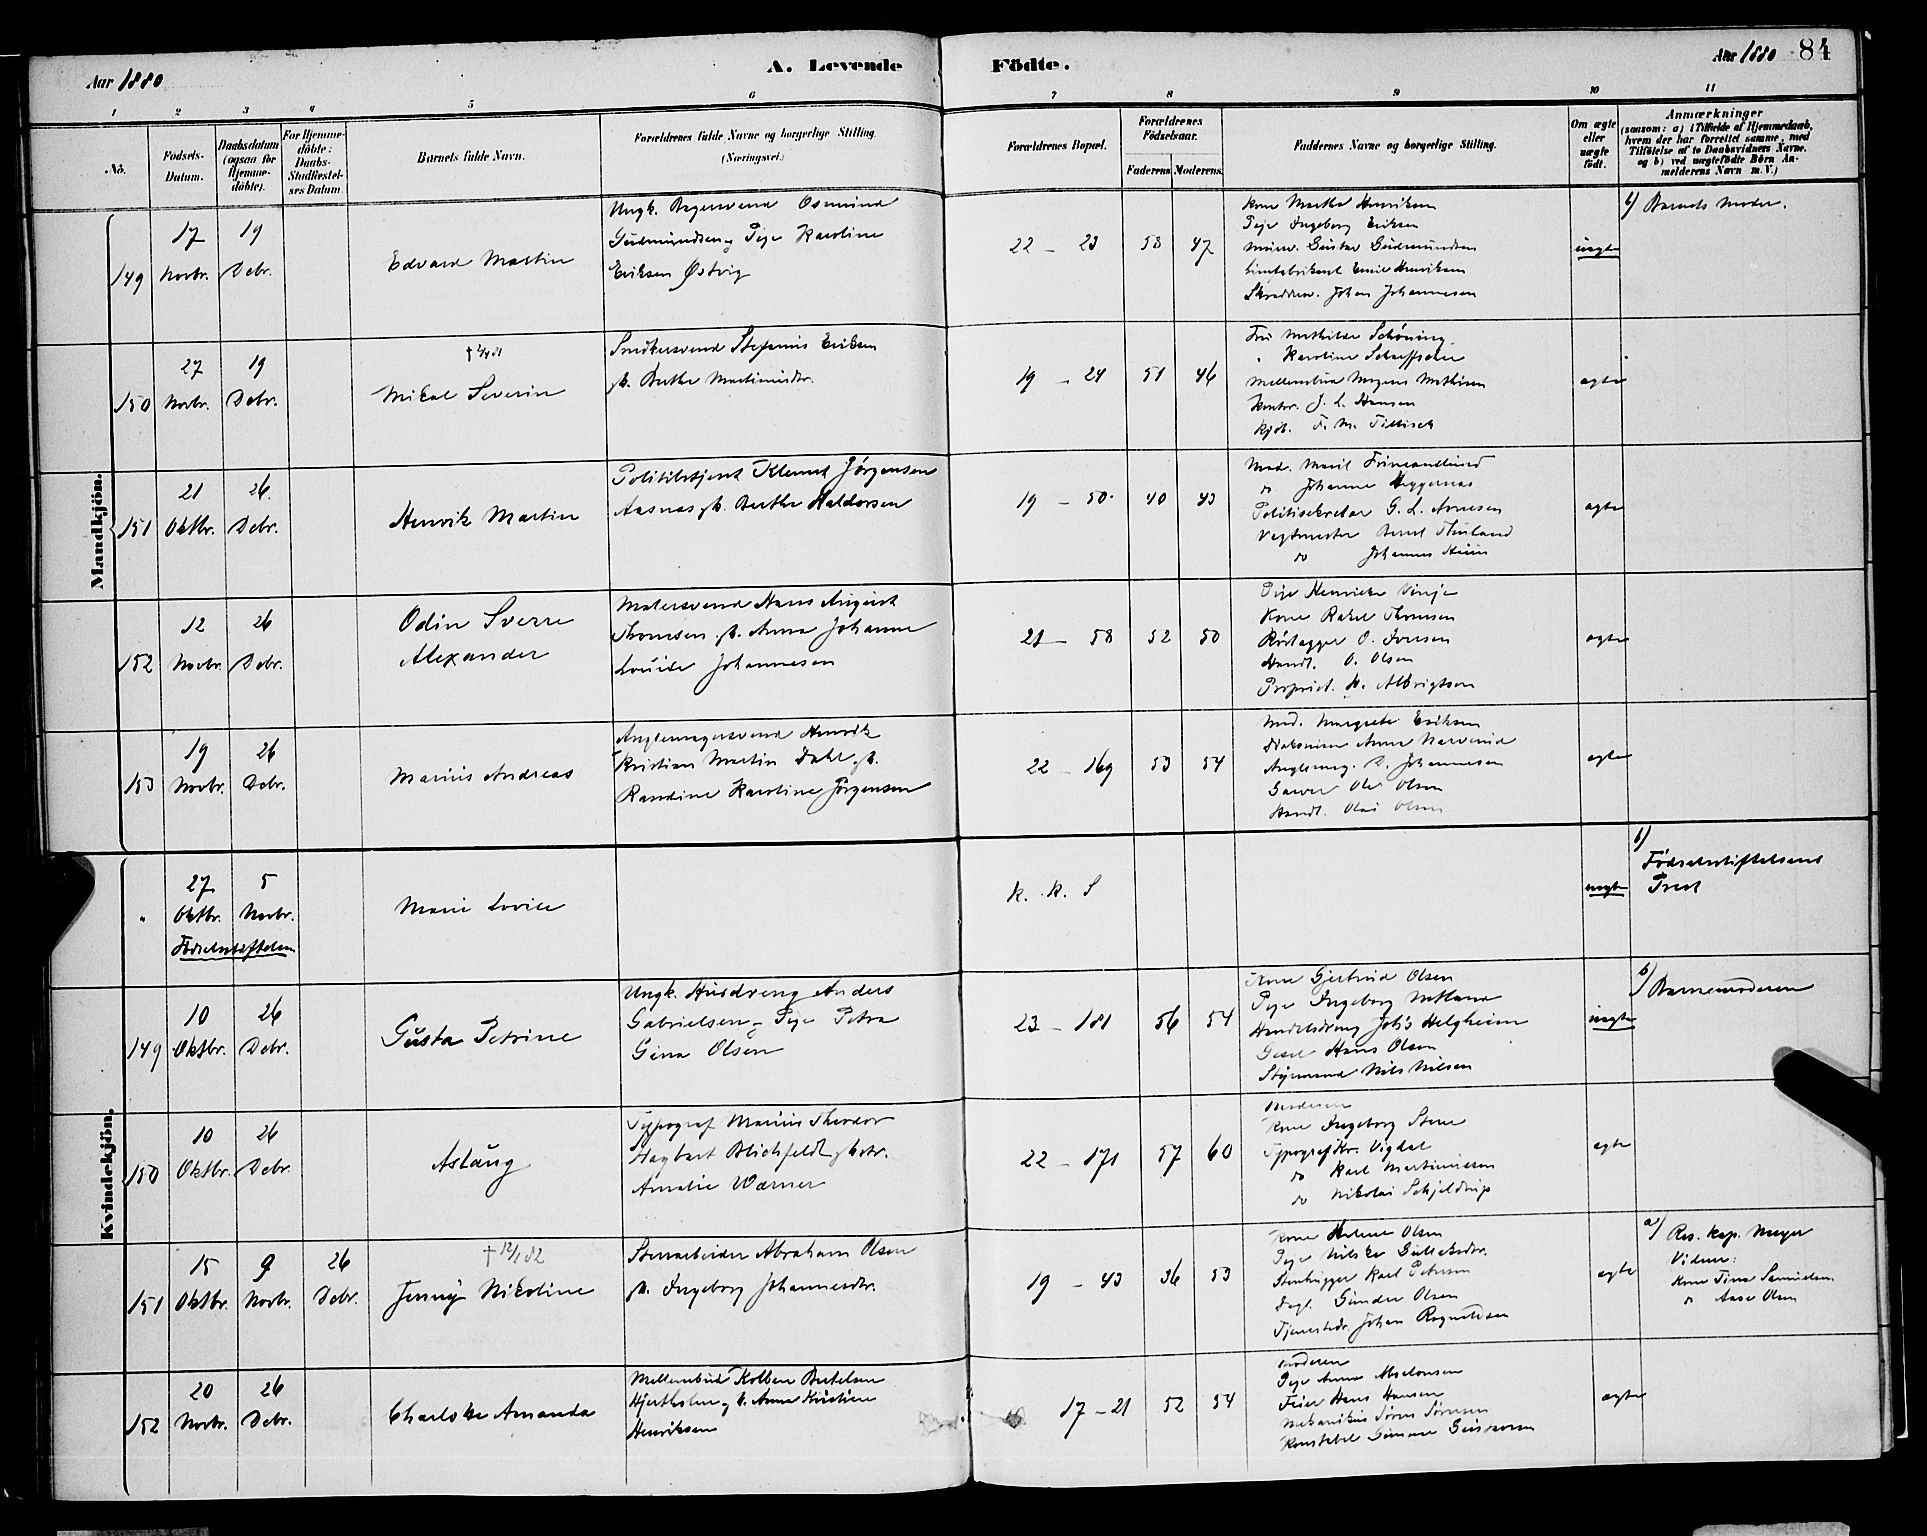 Aar 1880
A. Levende Födte.
Aar 1880 84
1 2 3 4 5 6 7 8 9 10 11
No.
Födsels-Datum.
Daabsdatum (ogsaa for Hjemme-döbte).
For Hjemme-döbte: Daabs-Stadfæstel-ses Datum
Barnets fulde Navn.
Forældrenes fulde Navne og borgerlige Stilling.
(Næringsvei.)
Forældrenes Bopæl.
Forældrenes Födselsaar.
Faderens Moderens
Faddernes Navne og borgerlige Stilling.
Om ægte eller uægte födt.
Anmærkninger
(saasom: a) i Tilfælde af Hjemmedaab,
hvem der har forrettet samme, med
Tilföielse af to Daabsvidners Navne,
og b) ved uægtefödte Börn An-
melderens Navn m.V.)
Mandkjön.
149
17 Novbr.
19 Debr.
Edvard Martin
Ungk. Bagersvend Osmund
Gudmundsen og Pige Karoline
Eriksen Østvig
22 - 23
58 47
Kone Martha Henriksen
Pige Ingeborg Eriksen
Gustav Gudmundsen
Emil Henriksen
Johan Johannesen
uægte
b) Barnets Moder.
150
27 Novbr.
19 Debr.
Mikal Severin
Snedkersvend Stefanus Eriksen
Berthe Martinusdtr.
19 - 24
51 46
Fru Mathilde Schöning
" Karoline
Mellembud Mogens Mathisen
Kontor. J. L. Hansen
Kjöb. F. M.
ægte
151
21 Oktbr.
26 Debr.
Henrik Martin
Politibetjent Klemet Jörgensen
Aasnæs Berthe Haldorsen
19 - 50
40 43
Mad. Marit
do Johanne Heggernæs
Politisekretær G. L. Arnesen
Vagtmester Bernt
do Johannes
ægte
152
12 Novbr.
26 Debr.
Odin Sverre
Alexander
Malersvend Hans August
Thomesen Anna Johanne
Louise Johannesen
21 - 58
52 50
Pige Henrikke Vinje
Kone Rakel Thomesen
O. Jonsen
Handl. O. Olsen
Propriet. H. Albrigtsen
ægte
153
19 Novbr.
26 Debr.
Marius Andreas
Henrik
Kristian Martin Dahl
Randine Karoline Jörgensen
22 - 169
53 54
Mad. Margrete Eriksen
Anne
Johannesen
Garver Ole Olsen
Handl. Olai Olsen
ægte
Kvindekjön.
"
27 Oktbr.
5 Novbr.
Fødselsstiftelsen
Marie Lovise
K. K. S
uægte
b) Fødselsstiftelsens
Prest
149
10 Oktbr.
26 Debr.
Gusta Petrine
Ungk. Huusdreng Anders
Gabrielsen og Pige Petra
Gina Olsen
23 - 181
56 54
Kone Gjertrud Olsen
Pige Ingeborg
Handelsdreng Joh's Helgheim
Hans Olsen
Styrmand Nils Nilsen
uægte
b) Barnemoderen
150
10 Oktbr.
26 Debr.
Aslaug
Typograf Marius Theodor
Hagbart Blichfeldt
Amalie Warner
22 - 171
57 60
Moderen
Kone Ingeborg Stene
Typograf Kr. Vigdal
do Karl Martinussen
do Nikolai Schjeldrup
ægte
151
15 Oktbr.
9 Novbr.
26 Debr.
† 12/1 82
Jenny Nikoline
Stenarbeider Abraham Olsen
Ingeborg Johannesdtr.
19 - 43
36 53
Kone Helene Olsen
Pige Gulleksdtr.
Stenhugger Karl Petersen
Dagl. Gunder Olsen
Johan Rognaldsen
ægte
a) Res. Kap. Meyer
Vidner:
Kone Tina Samuelsen
do Aase Olsen
152
20 Novbr.
26 Debr.
Charlotte Amanda
Mellembud Kolben Bertelsen
Anna Kristine
Henriksen
17 - 21
52 54
Moderen
Pige Anna Absalonsen
Feier Hans Hansen
Mekanikus
Konstabel
ægte